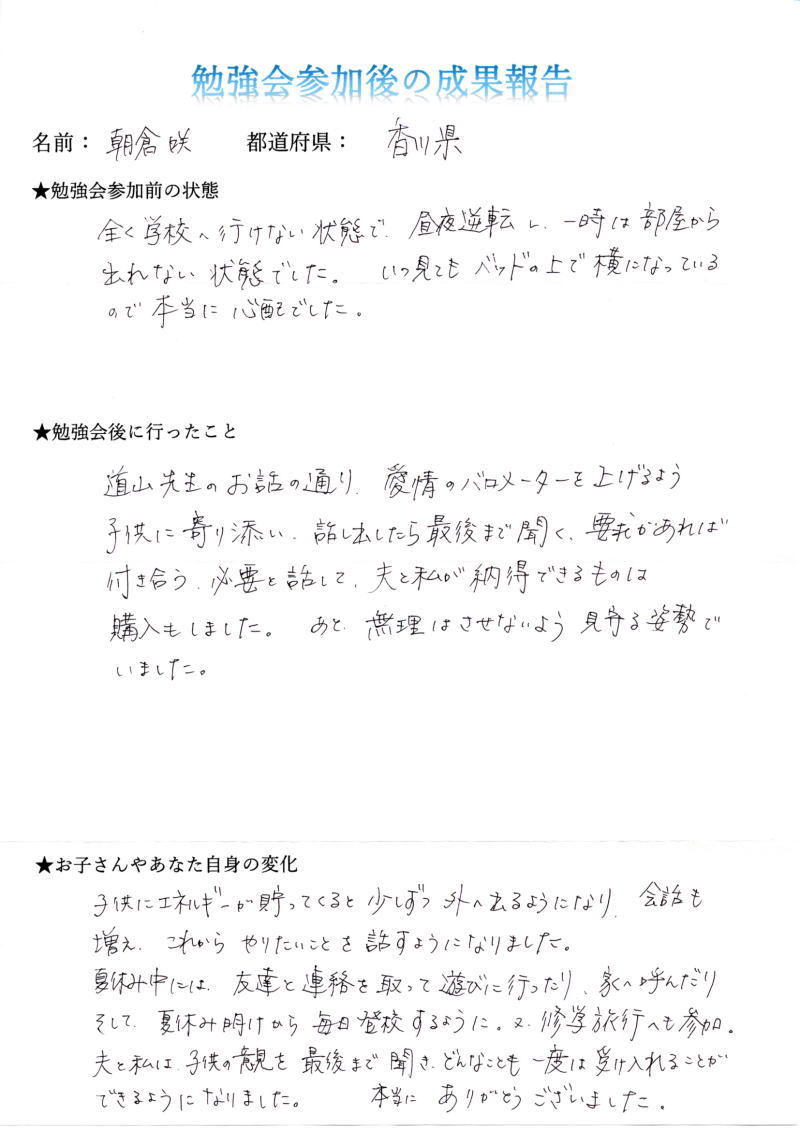 勉強会参加後の成果報告
名前： 朝倉咲 都道府県： 香川県
★勉強会参加前の状態
全く学校へ行けない状態で、昼夜逆転し、一時は部屋から
出れない状態でした。 いつ見てもベッドの上で横になっている
ので本当に心配でした。
★勉強会後に行ったこと
道山先生のお話の通り、愛情のバロメーターを上げるよう
子供に寄り添い、話し出したら最後まで聞く、要求があれば
付き合う、必要と話して、夫と私が納得できるものは
購入もしました。 あと、無理はさせないよう見守る姿勢で
いました。
★お子さんやあなた自身の変化
子供にエネルギーが貯ってくると少しずつ外へ出るようになり、会話も
増え、これからやりたいことを話すようになりました。
夏休み中には、友達と連絡を取って遊びに行ったり、家へ呼んだり
そして、夏休み明けから毎日登校するように。又、修学旅行へも参加。
夫と私は、子供の意見を最後まで聞き、どんなことも一度は受け入れることが
できるようになりました。 本当にありがとうございました。